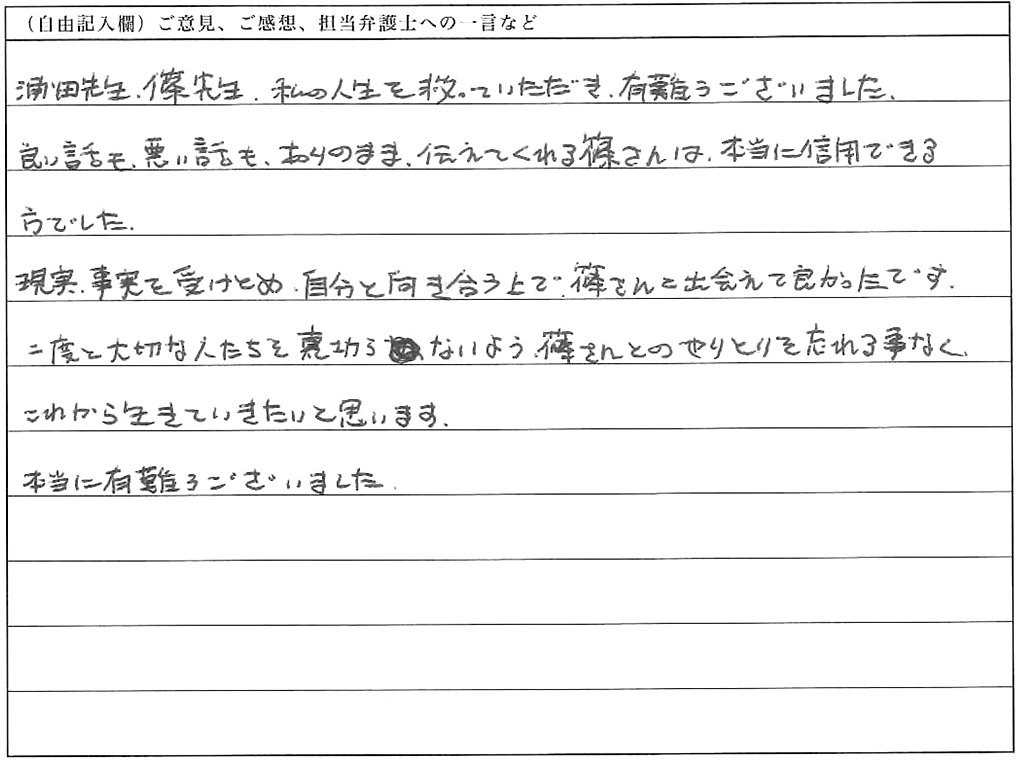 （自由記入欄）ご意見、ご感想、担当弁護士への一言など
浦田先生、篠先生、私の人生を救っていただき、有難うございました。
良い話も、悪い話も、ありのまま、伝えてくれる篠さんは、本当に信用できる
方でした。
現実、事実を受けとめ、自分と向き合う上で、篠さんと出会えて良かったです。
二度と大切な人たちを裏切らないよう、篠さんとのやりとりを忘れる事なく、
これから生きていきたいと思います。
本当に有難うございました。